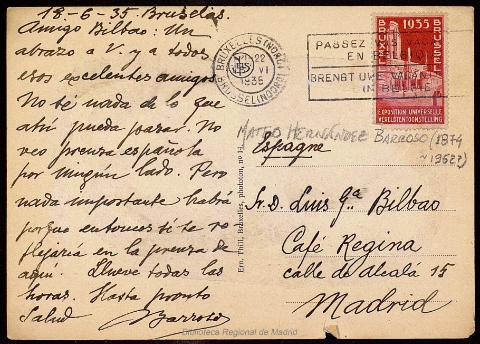 18-6-35 Bruselas.
Amigo Bilbao: Un
abrazo a V. y a todos
esos excelentes amigos.
No sé nada de lo que
ahí pueda pasar. No
veo prensa española
por ningun lado. Pero
nada importante habrá
porque entonces si se re
flejaría en la prensa de
aqui. Llueve todas las
horas. Hasta pronto
Salud Barroso
Ern. Thill, Bruxelles, phototyp.
BRUXELLES (NORD)
BRUSSEL (NOORD)
22
VI
1935
PASSEZ VOS VACAN
EN BELGI
BRENGT UW VACAN
IN BELGIE
BRUXELLES 1935 BRUSSEL
EXPOSITION UNIVERSELLE
WERELDTENTOONSTELLING
MATEO HERNÁNDEZ BARROSO (1874
~1962?)
Espagne
Sr. D. Luis Gª Bilbao
Café Regina
calle de Alcalá 15
Madrid
Biblioteca Regional de Madrid